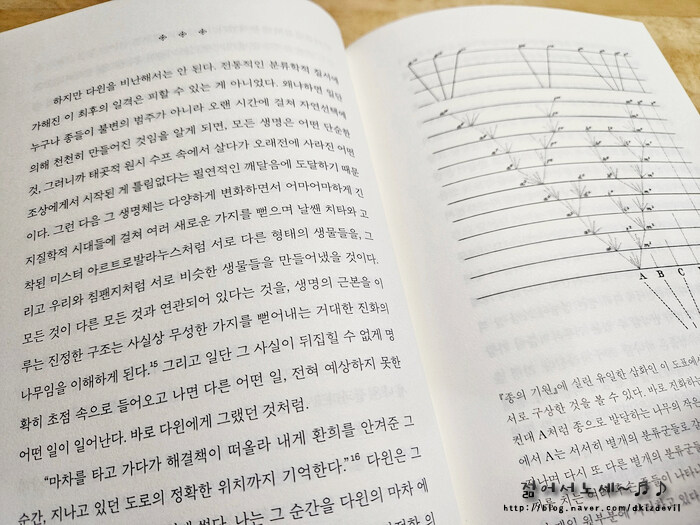 하지만 다윈을 비난해서는 안 된다. 전통적인 분류학적 질서에
가해진 이 최후의 일격은 피할 수 있는 게 아니었다. 왜냐하면 일단
누구나 종들이 불변의 범주가 아니라 오랜 시간에 걸쳐 자연선택에
의해 천천히 만들어진 것임을 알게 되면, 모든 생명은 어떤 단순한
것, 그러니까 태곳적 원시 수프 속에서 살다가 오래전에 사라진 어떤
조상에게서 시작된 게 틀림없다는 필연적인 깨달음에 도달하기 때문
이다. 그런 다음 그 생명체는 다양하게 변화하면서 어마어마하게 긴
지질학적 시대들에 걸쳐 여러 새로운 가지를 뻗으며 날쌘 치타와 고
착된 미스터 아르트로발라누스처럼 서로 다른 형태의 생물들을, 그
리고 우리와 침팬지처럼 서로 비슷한 생물들을 만들어냈을 것이다.
모든 것이 다른 모든 것과 연관되어 있다는 것을, 생명의 근본을 이
루는 진정한 구조는 사실상 무성한 가지를 뻗어내는 거대한 진화의
나무임을 이해하게 된다.15 그리고 일단 그 사실이 뒤집힐 수 없게 명
확히 초점 속으로 들어오고 나면 다른 어떤 일, 전혀 예상하지 못한
어떤 일이 일어난다. 바로 다윈에게 그랬던 것처럼.
"마차를 타고 가다가 해결책이 떠올라 내게 환희를 안겨준 그
순간, 지나고 있던 도로의 정확한 위치까지 기억한다."16 다윈은 그
그 순간을 다윈의 마차 에
A B C
『종의 기원』에 실린 유일한 삽화인 이 도표에서
서로 구상한 것을 볼 수 있다. 바로 진화
컨대 A처럼 종으로 발달하는 나무의 작은
에서 A는 서서히 별개의 분류군들로 갈
다시 또 다른 별개의 분류군들
젊어서노세~
http://blog.naver.com/dkizdevil